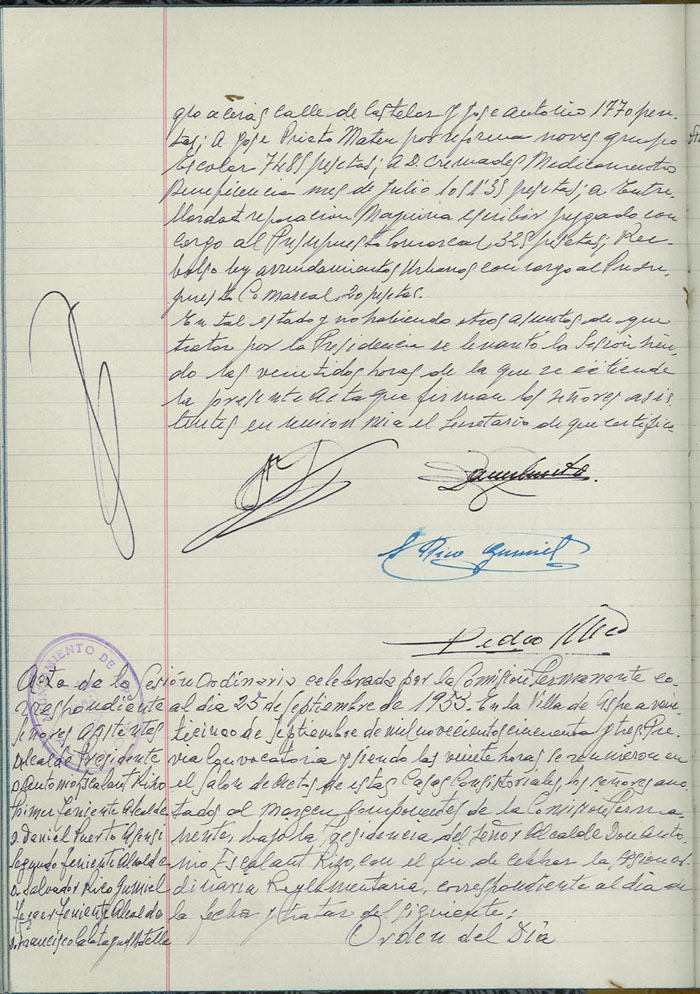 glo aceras calle de Castelar y Jose Antonio 1770 pese-
tas; A Jose Prieto Mateu por reforma noves grupo
Escolar 7485 pesetas; a D. Cremades Medicamentos
Beneficencia mes de Julio 1051'35 pesetas; a
reparacion Maquina escribir pagado con
cargo al Presupuesto Comarcal, 325 pesetas; Reem-
bolso ley arrendamientos Urbanos con cargo al Presu-
puesto Comarcal, 20 pesetas.
En tal estado y no habiendo otros asuntos de que
tratar por la Presidencia se levantó la Sesion sien-
do las veintidos horas de la que se extiende
la presente Acta que firman los señores asis-
tentes en union mia el Secretario de que certifico
S Rico Gumiel
Pedro
AYUNTAMIENTO DE
Acta de la Sesión Ordinaria celebrada por la Comisión Permanente co-
rrespondiente al dia 25 de Septiembre de 1953. En la Villa de Aspe a vein-
señores asistentes
ticinco de Septiembre de mil novecientos cincuenta y tres. Pre-
Alcalde Presidente
via Convocatoria y siendo las veinte horas se reunieron en
D. Antonio Escalant Rizo
el Salon de Actos de estas Casas Consistoriales, los señores ano-
Primer Teniente Alcalde
tados al margen, componentes de la Comisión Perma-
D. Daniel Puerto Asensi
nente, bajo la Presidencia del Señor Alcalde Don Anto-
Segundo Teniente Alcalde
nio Escalant Rizo, con el fin de celebrar la sesion or-
D. Salvador Rico Gumiel
dinaria Reglamentaria, correspondiente al dia de
Tercer Teniente Alcalde
la fecha y tratar del siguiente;
D. Francisco Calatayud Botella
Orden del Dia